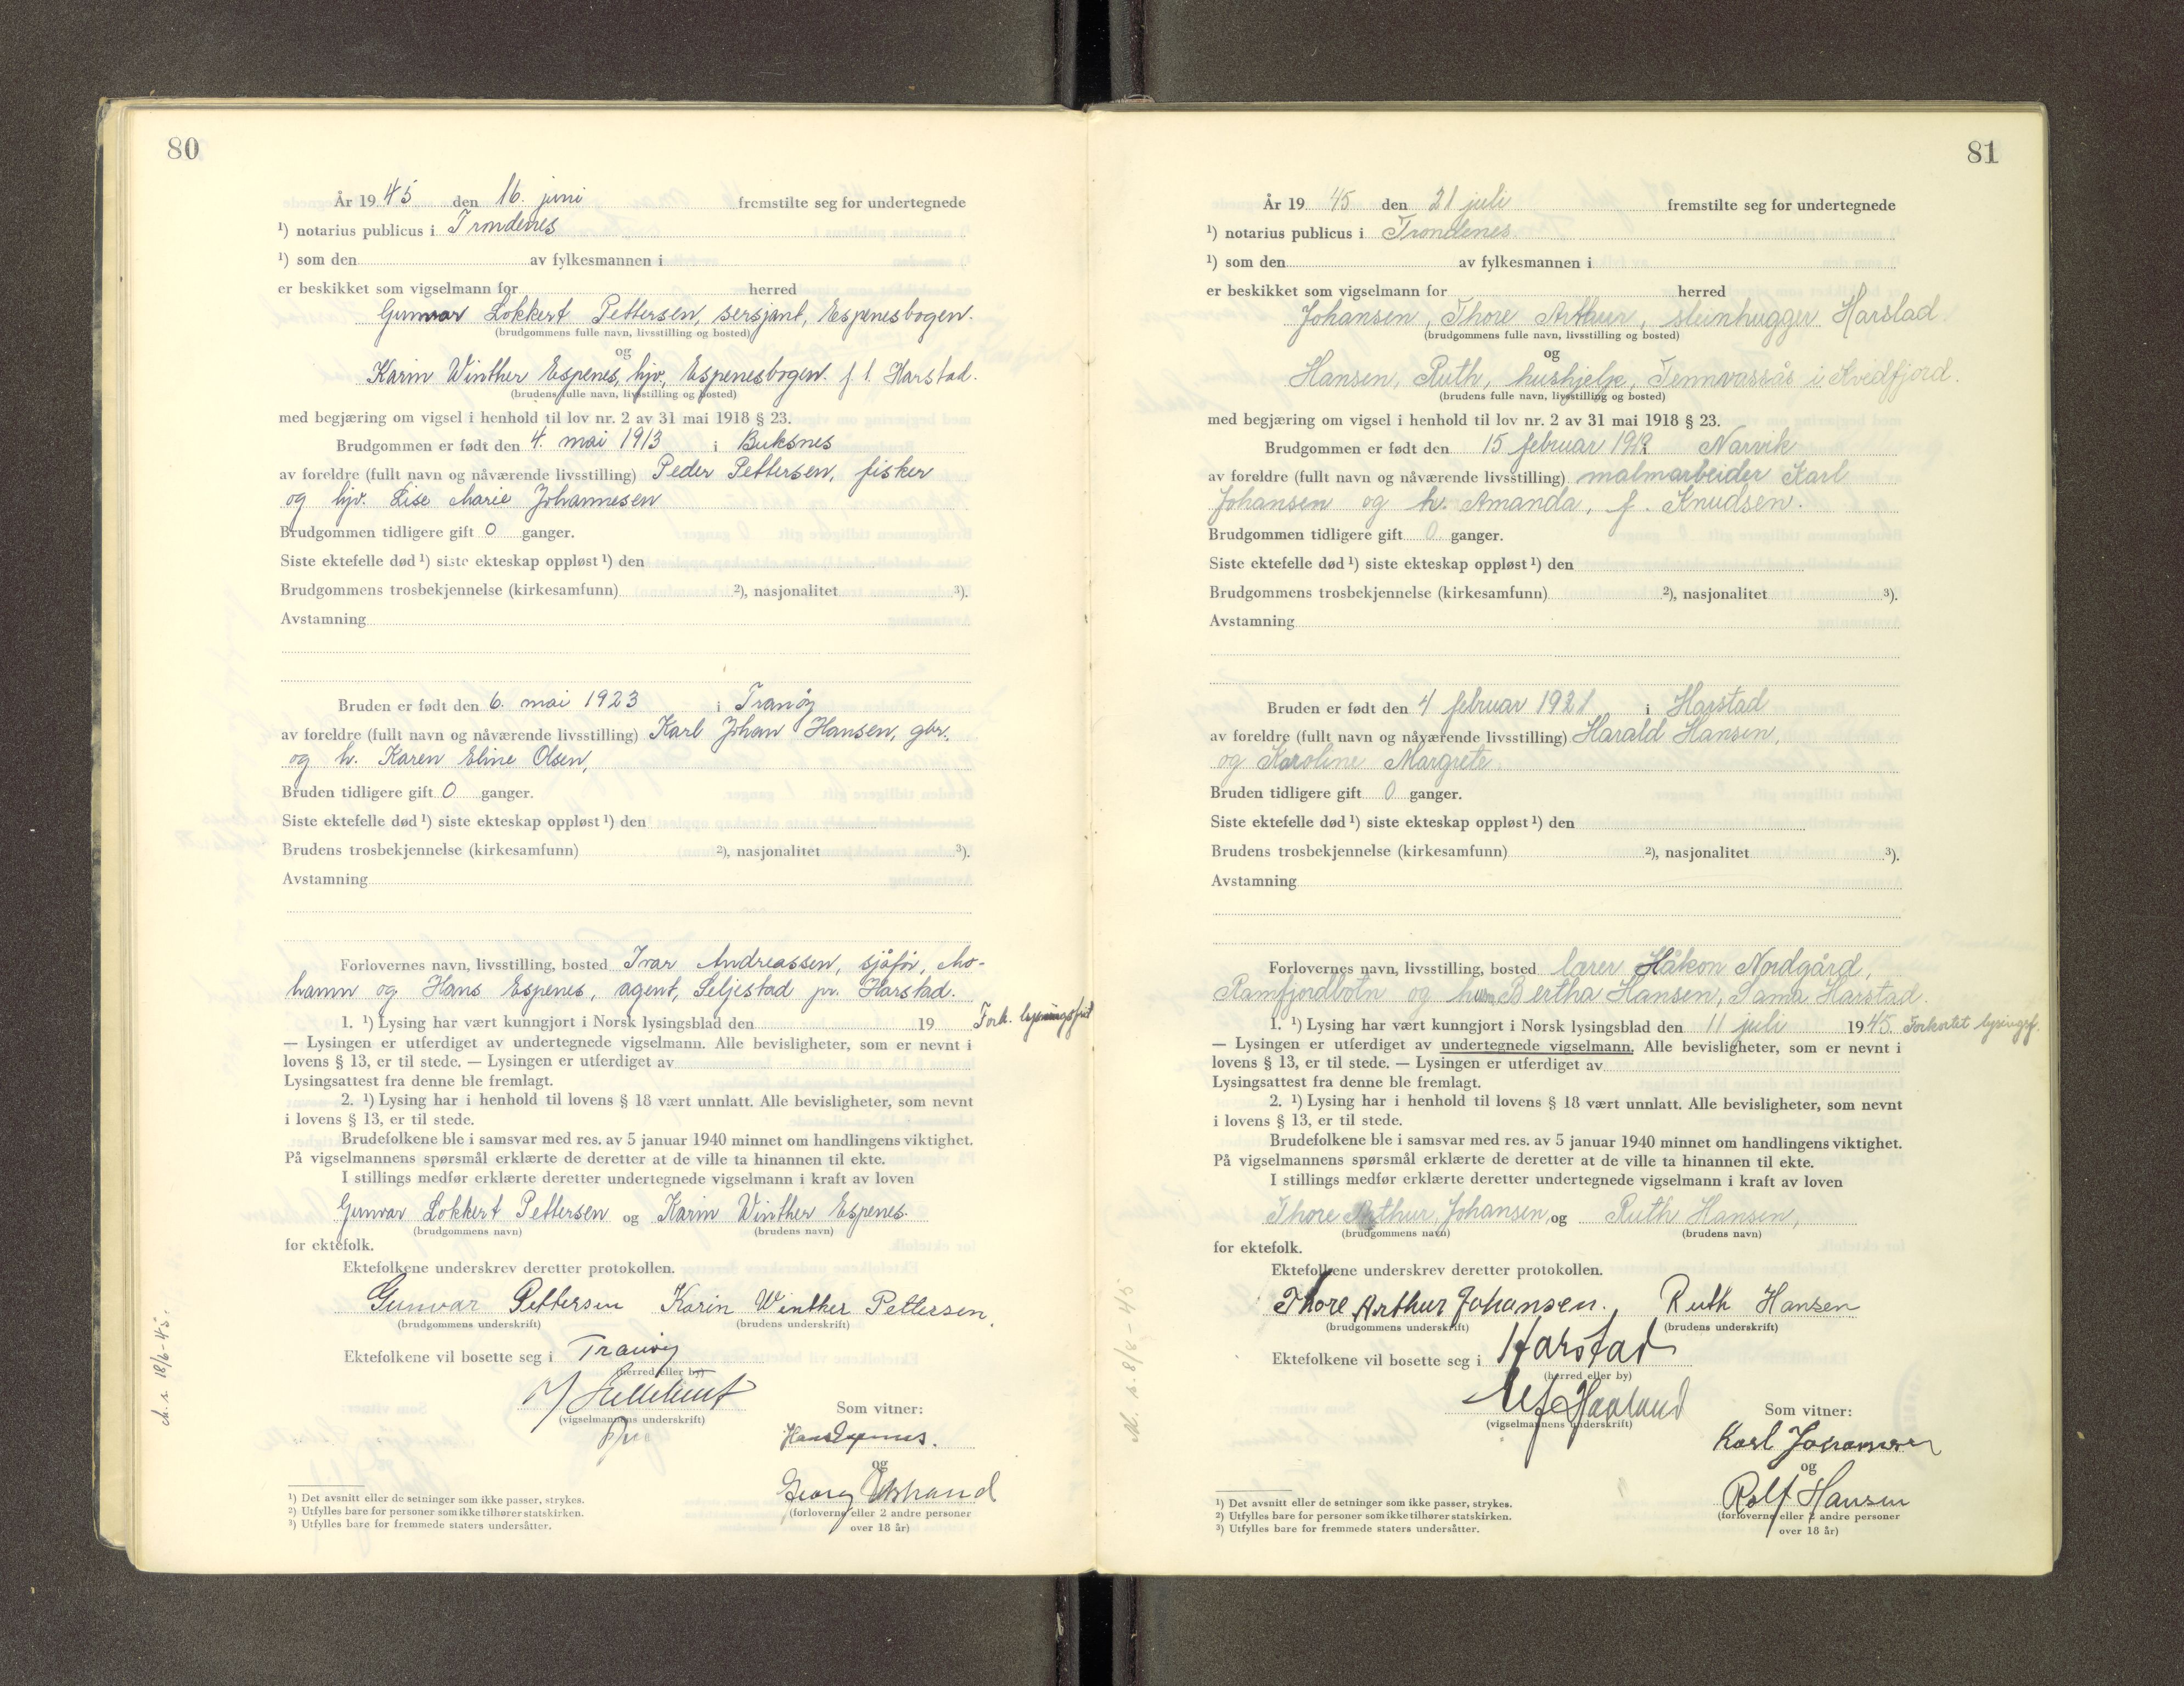 80
År 1945 den 16. juni fremstilte seg for undertegnede
¹) notarius publicus i Trondenes
¹) som den av fylkesmannen i
er beskikket som vigselmann for herred
Gunvar Lokkert Pettersen, sersjant, Espenesbogen.
(brudgommens fulle navn, livsstilling og bosted)
og
Karin Winther Espenes, hjv., Espenesbogen. f. t. Harstad.
(brudens fulle navn, livsstilling og bosted)
med begjæring om vigsel i henhold til lov nr. 2 av 31 mai 1918 § 23.
Brudgommen er født den 4. mai 1913 i Buksnes
av foreldre (fullt navn og nåværende livsstilling) Peder Pettersen, fisker
og hjv. Lise Marie Johannesen
Brudgommen tidligere gift 0 ganger.
Siste ektefelle død ¹) siste ekteskap oppløst ¹) den
Brudgommens trosbekjennelse (kirkesamfunn) ²), nasjonalitet ³).
Avstamning
Bruden er født den 6. mai 1923 i Tranøy
av foreldre (fullt navn og nåværende livsstilling) Karl Johan Hansen, gbr.
og h. Karen Eline Olsen,
Bruden tidligere gift 0 ganger.
Siste ektefelle død ¹) siste ekteskap oppløst ¹) den
Brudens trosbekjennelse (kirkesamfunn) ²), nasjonalitet ³).
Avstamning
Forlovernes navn, livsstilling, bosted Ivar Andreassen, sjåfør, Mo-
hamn og Hans Espenes, agent, Seljestad pr. Harstad.
1. ¹) Lysing har vært kunngjort i Norsk lysingsblad den 19 Fork. lysingsfrist
— Lysingen er utferdiget av undertegnede vigselmann. Alle bevisligheter, som er nevnt i
lovens § 13, er til stede. — Lysingen er utferdiget av
Lysingsattest fra denne ble fremlagt.
2. ¹) Lysing har i henhold til lovens § 18 vært unnlatt. Alle bevisligheter, som nevnt
i lovens § 13, er til stede.
Brudefolkene ble i samsvar med res. av 5 januar 1940 minnet om handlingens viktighet.
På vigselmannens spørsmål erklærte de deretter at de ville ta hinannen til ekte.
I stillings medfør erklærte deretter undertegnede vigselmann i kraft av loven
Gunvar Lokkert Pettersen og Karin Winther Espenes
(brudgommens navn) (brudens navn)
for ektefolk.
Ektefolkene underskrev deretter protokollen.
Gunvar Pettersen Karin Winther Pettersen.
(brudgommens underskrift) (brudens underskrift)
Ektefolkene vil bosette seg i Tranøy
(herred eller by)
(vigselmannens underskrift)
Som vitner:
Hans Espenes.
og
Georg
(forloverne eller 2 andre personer
over 18 år)
18/6-45
¹) Det avsnitt eller de setninger som ikke passer, strykes.
²) Utfylles bare for personer som ikke tilhører statskirken.
³) Utfylles bare for fremmede staters undersåtter.
81
År 1945 den 21 juli fremstilte seg for undertegnede
¹) notarius publicus i Trondenes
¹) som den av fylkesmannen i
er beskikket som vigselmann for herred
Johansen, Thore Arthur, steinhugger Harstad.
(brudgommens fulle navn, livsstilling og bosted)
og
Hansen, Ruth, hushjelp, Tennvassås i Kvedfjord.
(brudens fulle navn, livsstilling og bosted)
med begjæring om vigsel i henhold til lov nr. 2 av 31 mai 1918 § 23.
Brudgommen er født den 15 februar 1912 Narvik
av foreldre (fullt navn og nåværende livsstilling) malmarbeider Karl
Johansen og h. Amanda, f. Knudsen.
Brudgommen tidligere gift 0 ganger.
Siste ektefelle død ¹) siste ekteskap oppløst ¹) den
Brudgommens trosbekjennelse (kirkesamfunn) ²), nasjonalitet ³).
Avstamning
Bruden er født den 4 februar 1921 i Harstad
av foreldre (fullt navn og nåværende livsstilling) Harald Hansen,
og Karoline Margrete.
Bruden tidligere gift 0 ganger.
Siste ektefelle død ¹) siste ekteskap oppløst ¹) den
Brudens trosbekjennelse (kirkesamfunn) ²), nasjonalitet ³).
Avstamning
Forlovernes navn, livsstilling, bosted lærer Håkon Nordgård,
Ramfjordbotn og Bertha Hansen, Sama Harstad.
1. ¹) Lysing har vært kunngjort i Norsk lysingsblad den 11 juli 1945. Forkortet lysingsf.
— Lysingen er utferdiget av undertegnede vigselmann. Alle bevisligheter, som er nevnt i
lovens § 13, er til stede. — Lysingen er utferdiget av
Lysingsattest fra denne ble fremlagt.
2. ¹) Lysing har i henhold til lovens § 18 vært unnlatt. Alle bevisligheter, som nevnt
i lovens § 13, er til stede.
Brudefolkene ble i samsvar med res. av 5 januar 1940 minnet om handlingens viktighet.
På vigselmannens spørsmål erklærte de deretter at de ville ta hinannen til ekte.
I stillings medfør erklærte deretter undertegnede vigselmann i kraft av loven
Thore Arthur Johansen og Ruth Hansen,
(brudgommens navn) (brudens navn)
for ektefolk.
Ektefolkene underskrev deretter protokollen.
Thore Arthur Johansen. Ruth Hansen
(brudgommens underskrift) (brudens underskrift)
Ektefolkene vil bosette seg i Harstad
(herred eller by)
Alf Haaland
(vigselmannens underskrift)
Som vitner:
Karl Johansen
og
Rolf Hansen
(forloverne eller 2 andre personer
over 18 år)
8/8-45
¹) Det avsnitt eller de setninger som ikke passer, strykes.
²) Utfylles bare for personer som ikke tilhører statskirken.
³) Utfylles bare for fremmede staters undersåtter.